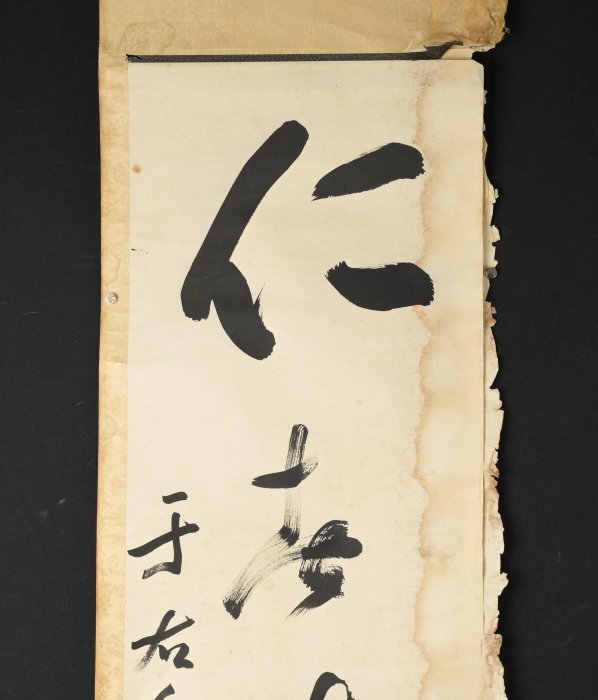 仁者
于右